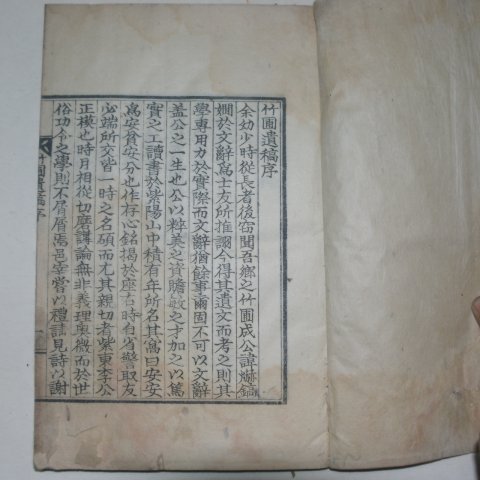 竹圃遺稿序
余幼少時從長者後窃聞吾鄉之竹圃成公諱 鎬
嫺於文辭爲士友所推詡今得其遺文而考之則其
學專用力於實際而文辭猶餘事爾固不可以文辭
盖公之一生也公以粹美之資贍敏之才加之以篤
實之工讀書於紫陽山中積有年所名其窩曰安安
寫安貧安分也作存心銘揭於座右時自省警取友
必端所交皆一時之名碩而尤其親切者紫東李公
正模也時月相從切磨講論無非義理奧微而於世
俗功令之 則不屑屑焉邑宰嘗以禮請見詩以謝
竹圃遺稿序